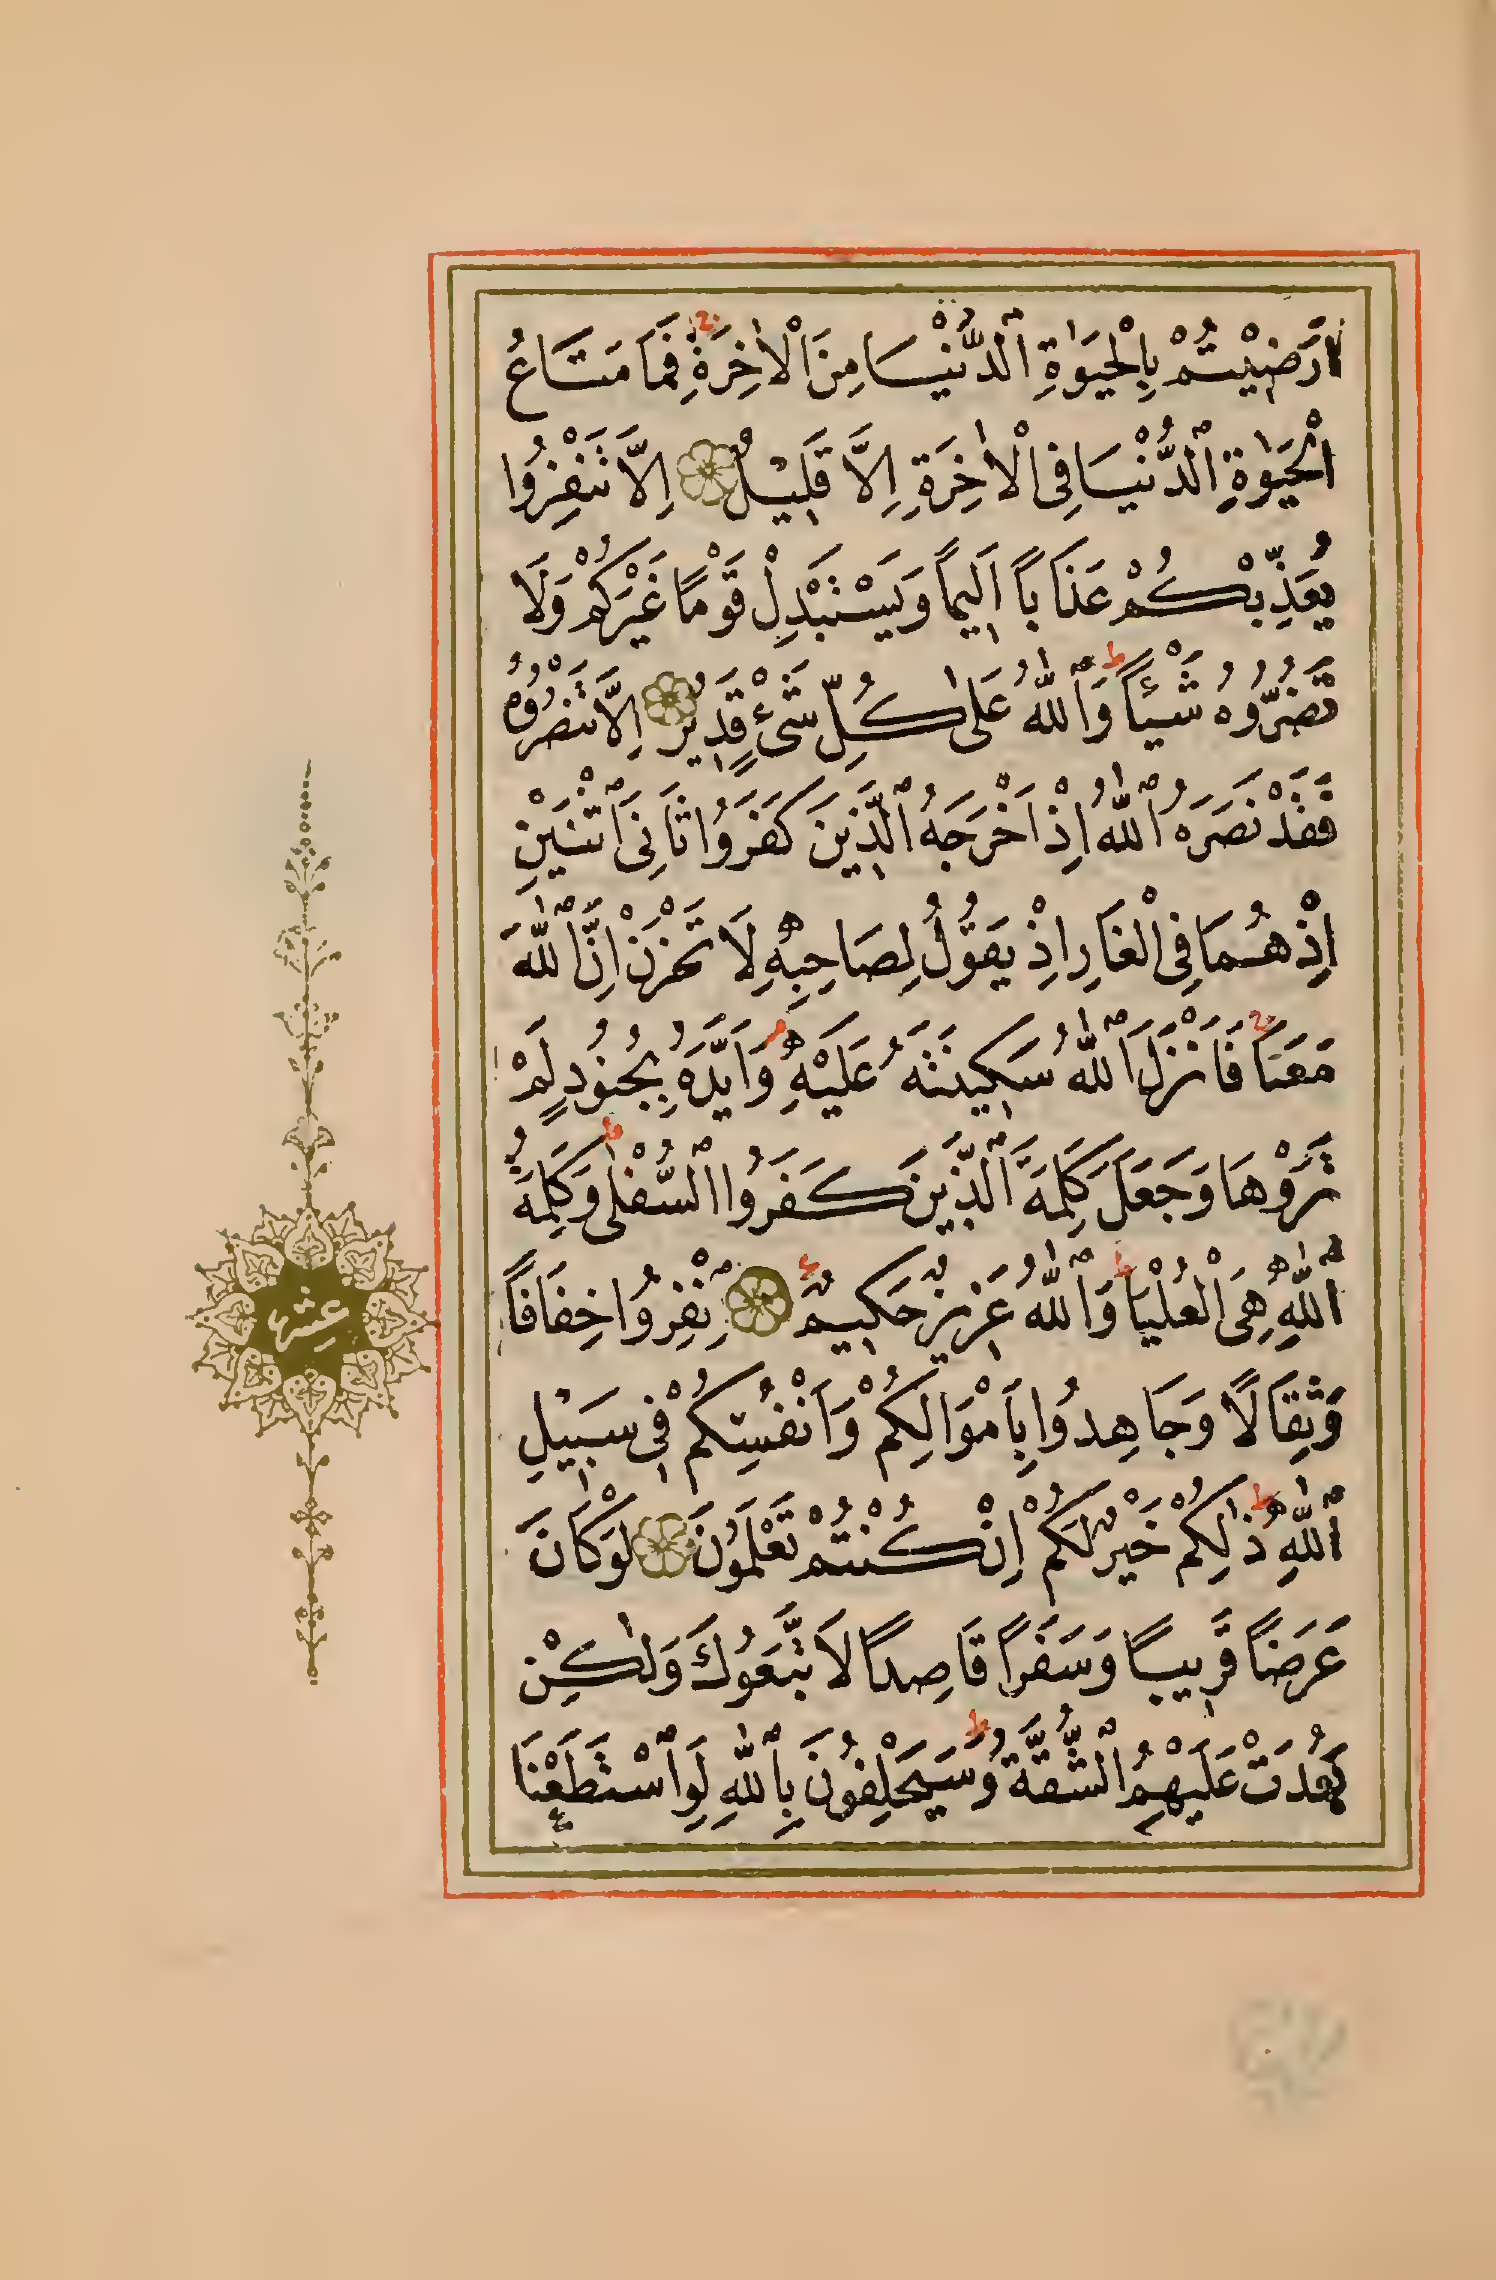 اَرَضِيْتُمْ بِالْحَيٰوةِ الدُّنْيَا مِنَ الْاٰخِرَةِۚ فَمَا مَتَاعُ
الْحَيٰوةِ الدُّنْيَا فِى الْاٰخِرَةِ اِلَّا قَلِيْلٌ اِلَّا تَنْفِرُوا
يُعَذِّبْكُمْ عَذَابًا اَلِيمًا وَيَسْتَبْدِلْ قَوْمًا غَيْرَكُمْ وَلَا
تَضُرُّوهُ شَيْـًٔاۜ وَاللّٰهُ عَلٰى كُلِّ شَىْءٍ قَدِيرٌ اِلَّا تَنْصُرُوهُ
فَقَدْ نَصَرَهُ اللّٰهُ اِذْ اَخْرَجَهُ الَّذِينَ كَفَرُوا ثَانِىَ اثْنَيْنِ
اِذْ هُمَا فِى الْغَارِ اِذْ يَقُولُ لِصَاحِبِهٖ لَا تَحْزَنْ اِنَّ اللّٰهَ
مَعَنَاۚ فَاَنْزَلَ اللّٰهُ سَكِينَتَهُ عَلَيْهِ وَاَيَّدَهُ بِجُنُودٍ لَمْ
تَرَوْهَا وَجَعَلَ كَلِمَةَ الَّذِينَ كَفَرُوا السُّفْلٰىۜ وَكَلِمَةُ
اللّٰهِ هِىَ الْعُلْيَاۜ وَاللّٰهُ عَزِيزٌ حَكِيمٌ اِنْفِرُوا خِفَافًا
وَثِقَالًا وَجَاهِدُوا بِاَمْوَالِكُمْ وَاَنْفُسِكُمْ فِى سَبِيلِ
اللّٰهِۜ ذٰلِكُمْ خَيْرٌ لَكُمْ اِنْ كُنْتُمْ تَعْلَمُونَ لَوْ كَانَ
عَرَضًا قَرِيبًا وَسَفَرًا قَاصِدًا لَاتَّبَعُوكَ وَلٰكِنْ
بَعُدَتْ عَلَيْهِمُ الشُّقَّةُۜ وَسَيَحْلِفُونَ بِاللّٰهِ لَوِ اسْتَطَعْنَا
عشر